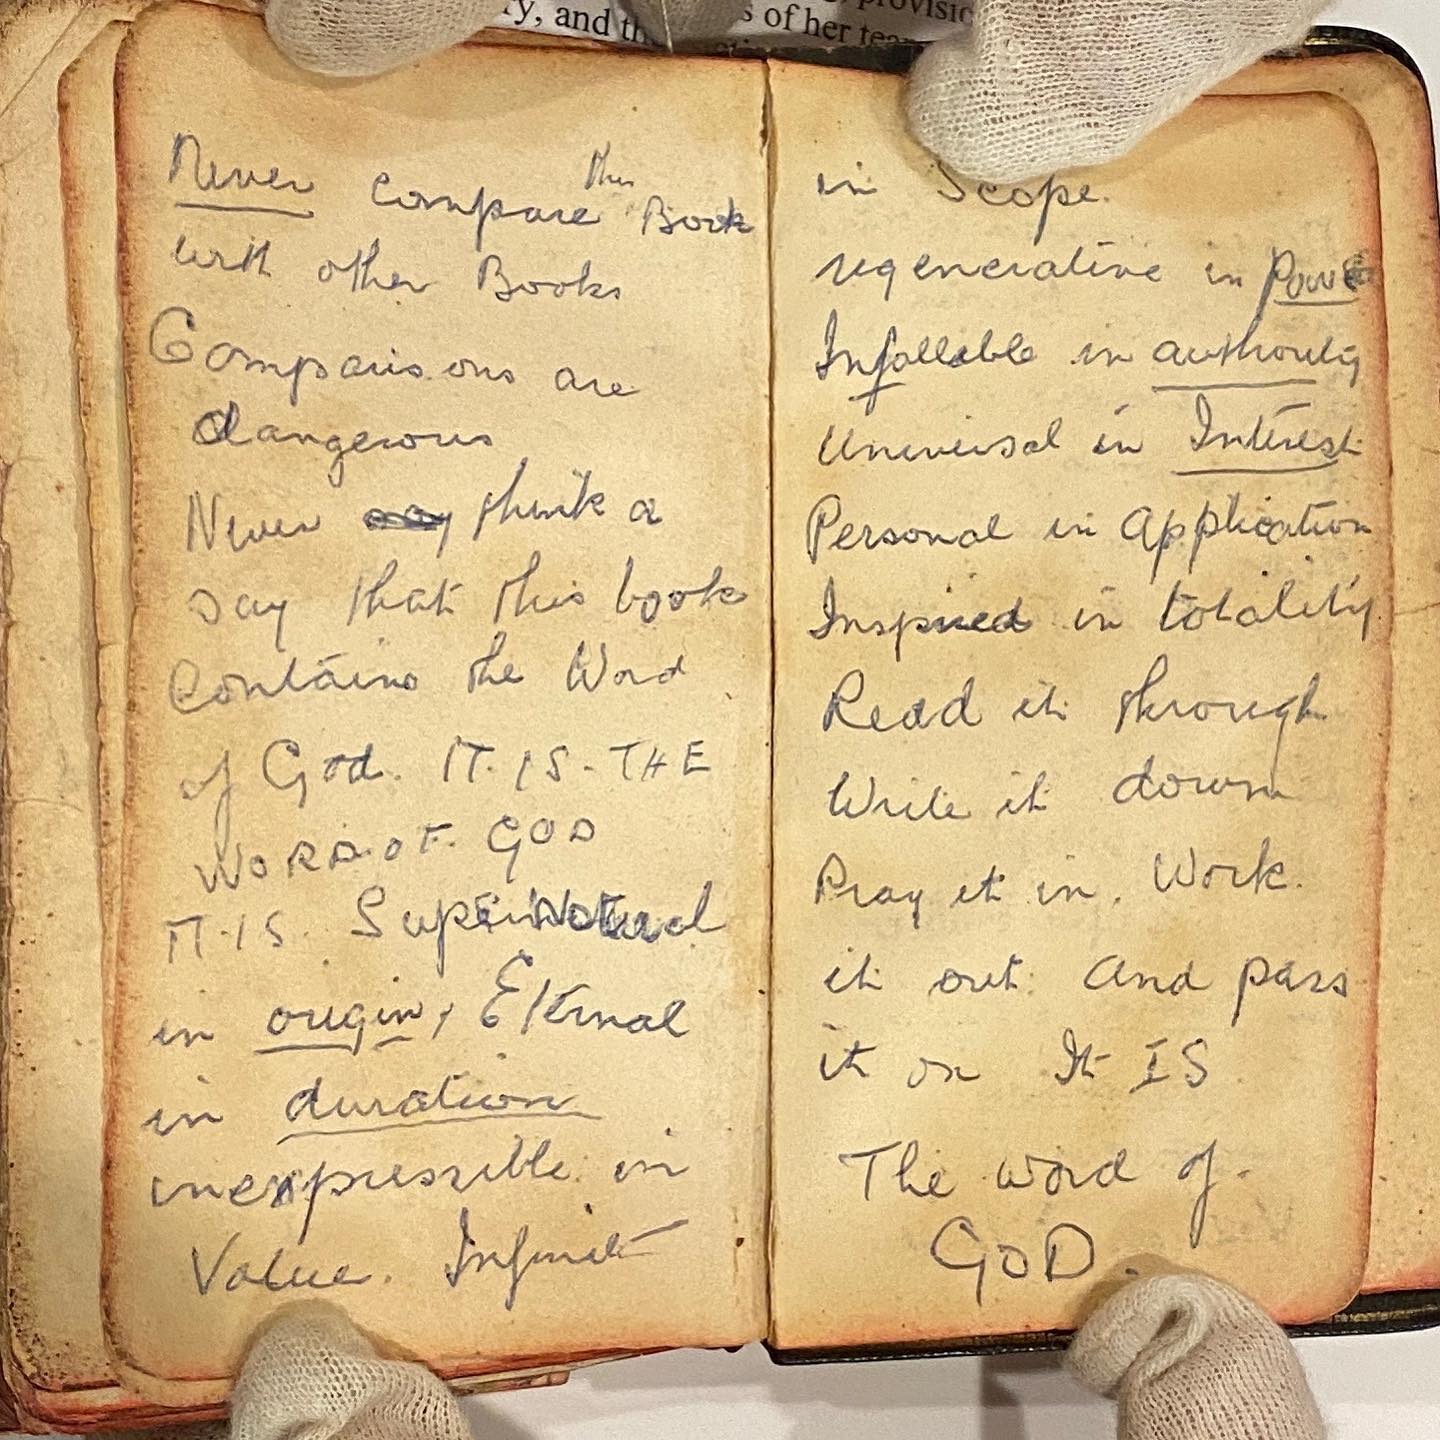 ry, and th
s of her tea
provisio
Never compare this Book
with other Books
Comparisons are
dangerous
Never think or
say that this book
Contains the Word
of God. IT. IS - THE
WORD. OF. GOD
IT. IS. Supernatural
in origin, Eternal
in duration
inexpressible in
Value. Infinite
in Scope.
regenerative in Power
Infallible in authority
Universal in Interest
Personal in Application
Inspired in totality
Read it through
Write it down
Pray it in. Work.
it out. and pass
it on It IS
The word of.
GOD.